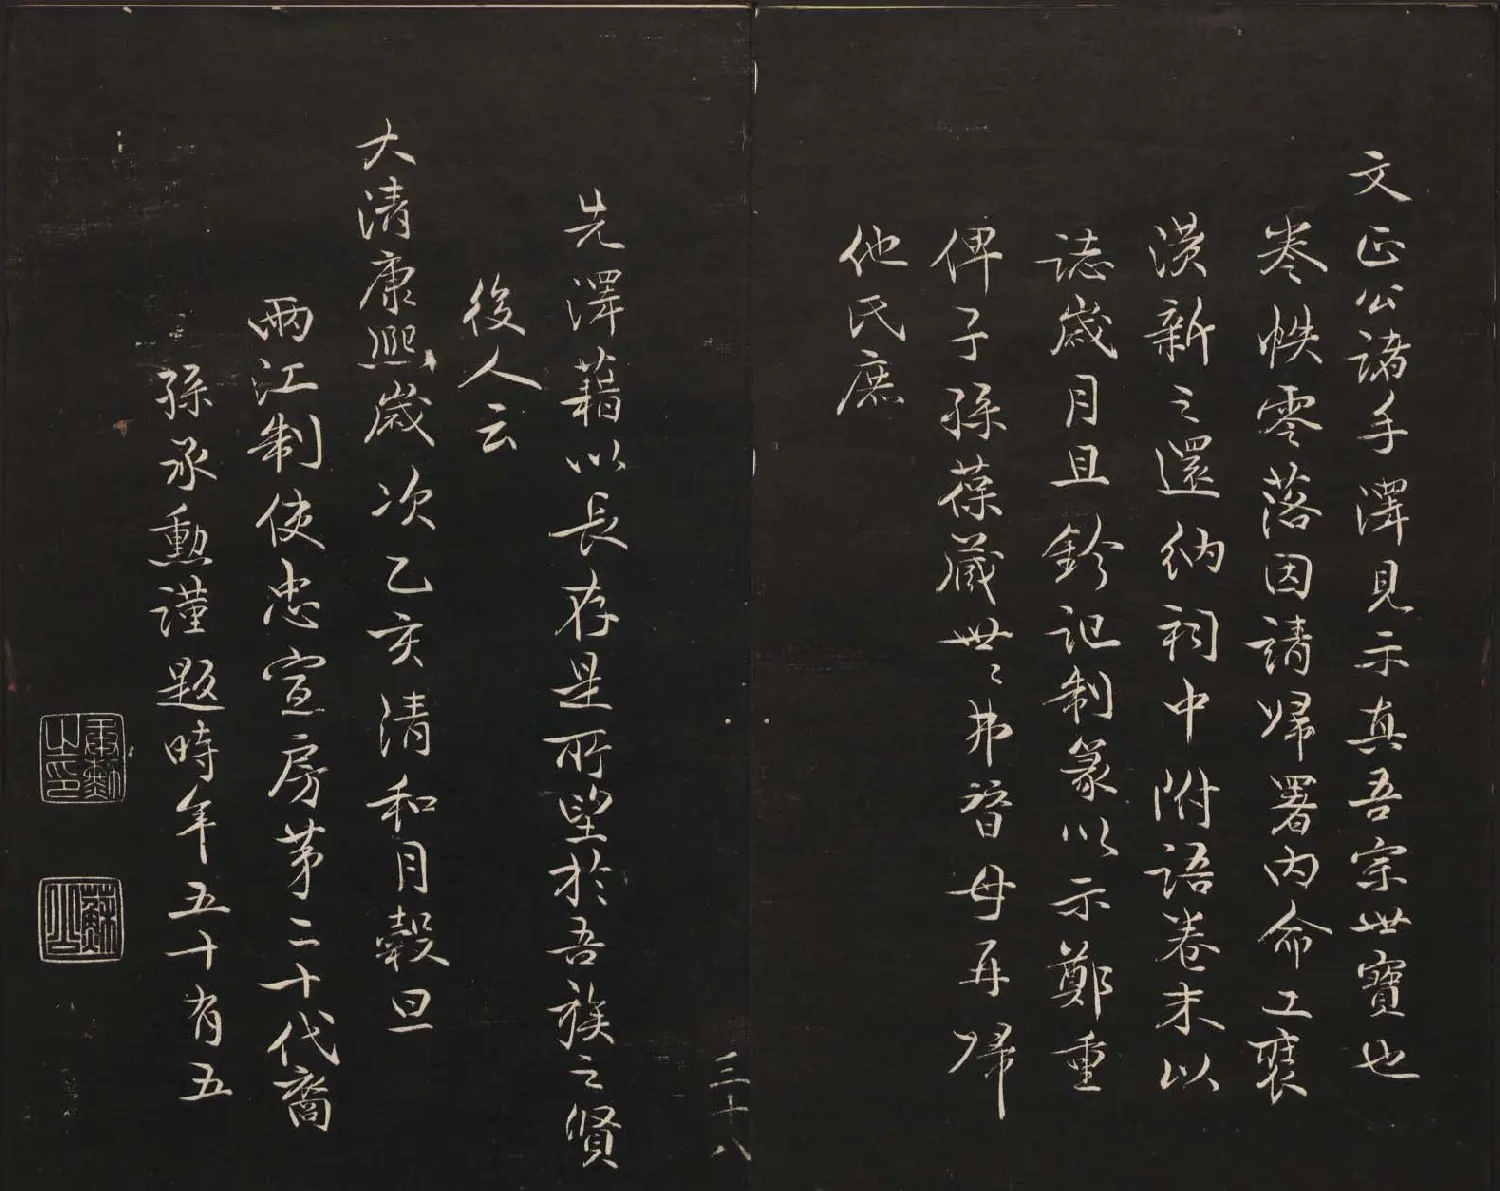 文正公諸手澤見示真吾宗世寶也
卷帙零落因請歸署內命工裝
潢新之還納祠中附語卷末以
誌歲月且鈐記制篆以示鄭重
俾子孫葆藏世〻弗替毋再歸
他氏庶
三十八
先澤藉以長存是所望於吾族之賢
後人云
大清康熙歲次乙亥清和月穀旦
兩江制使忠宣房第二十代裔
孫承勳謹題時年五十有五
承勳之印
蘇公